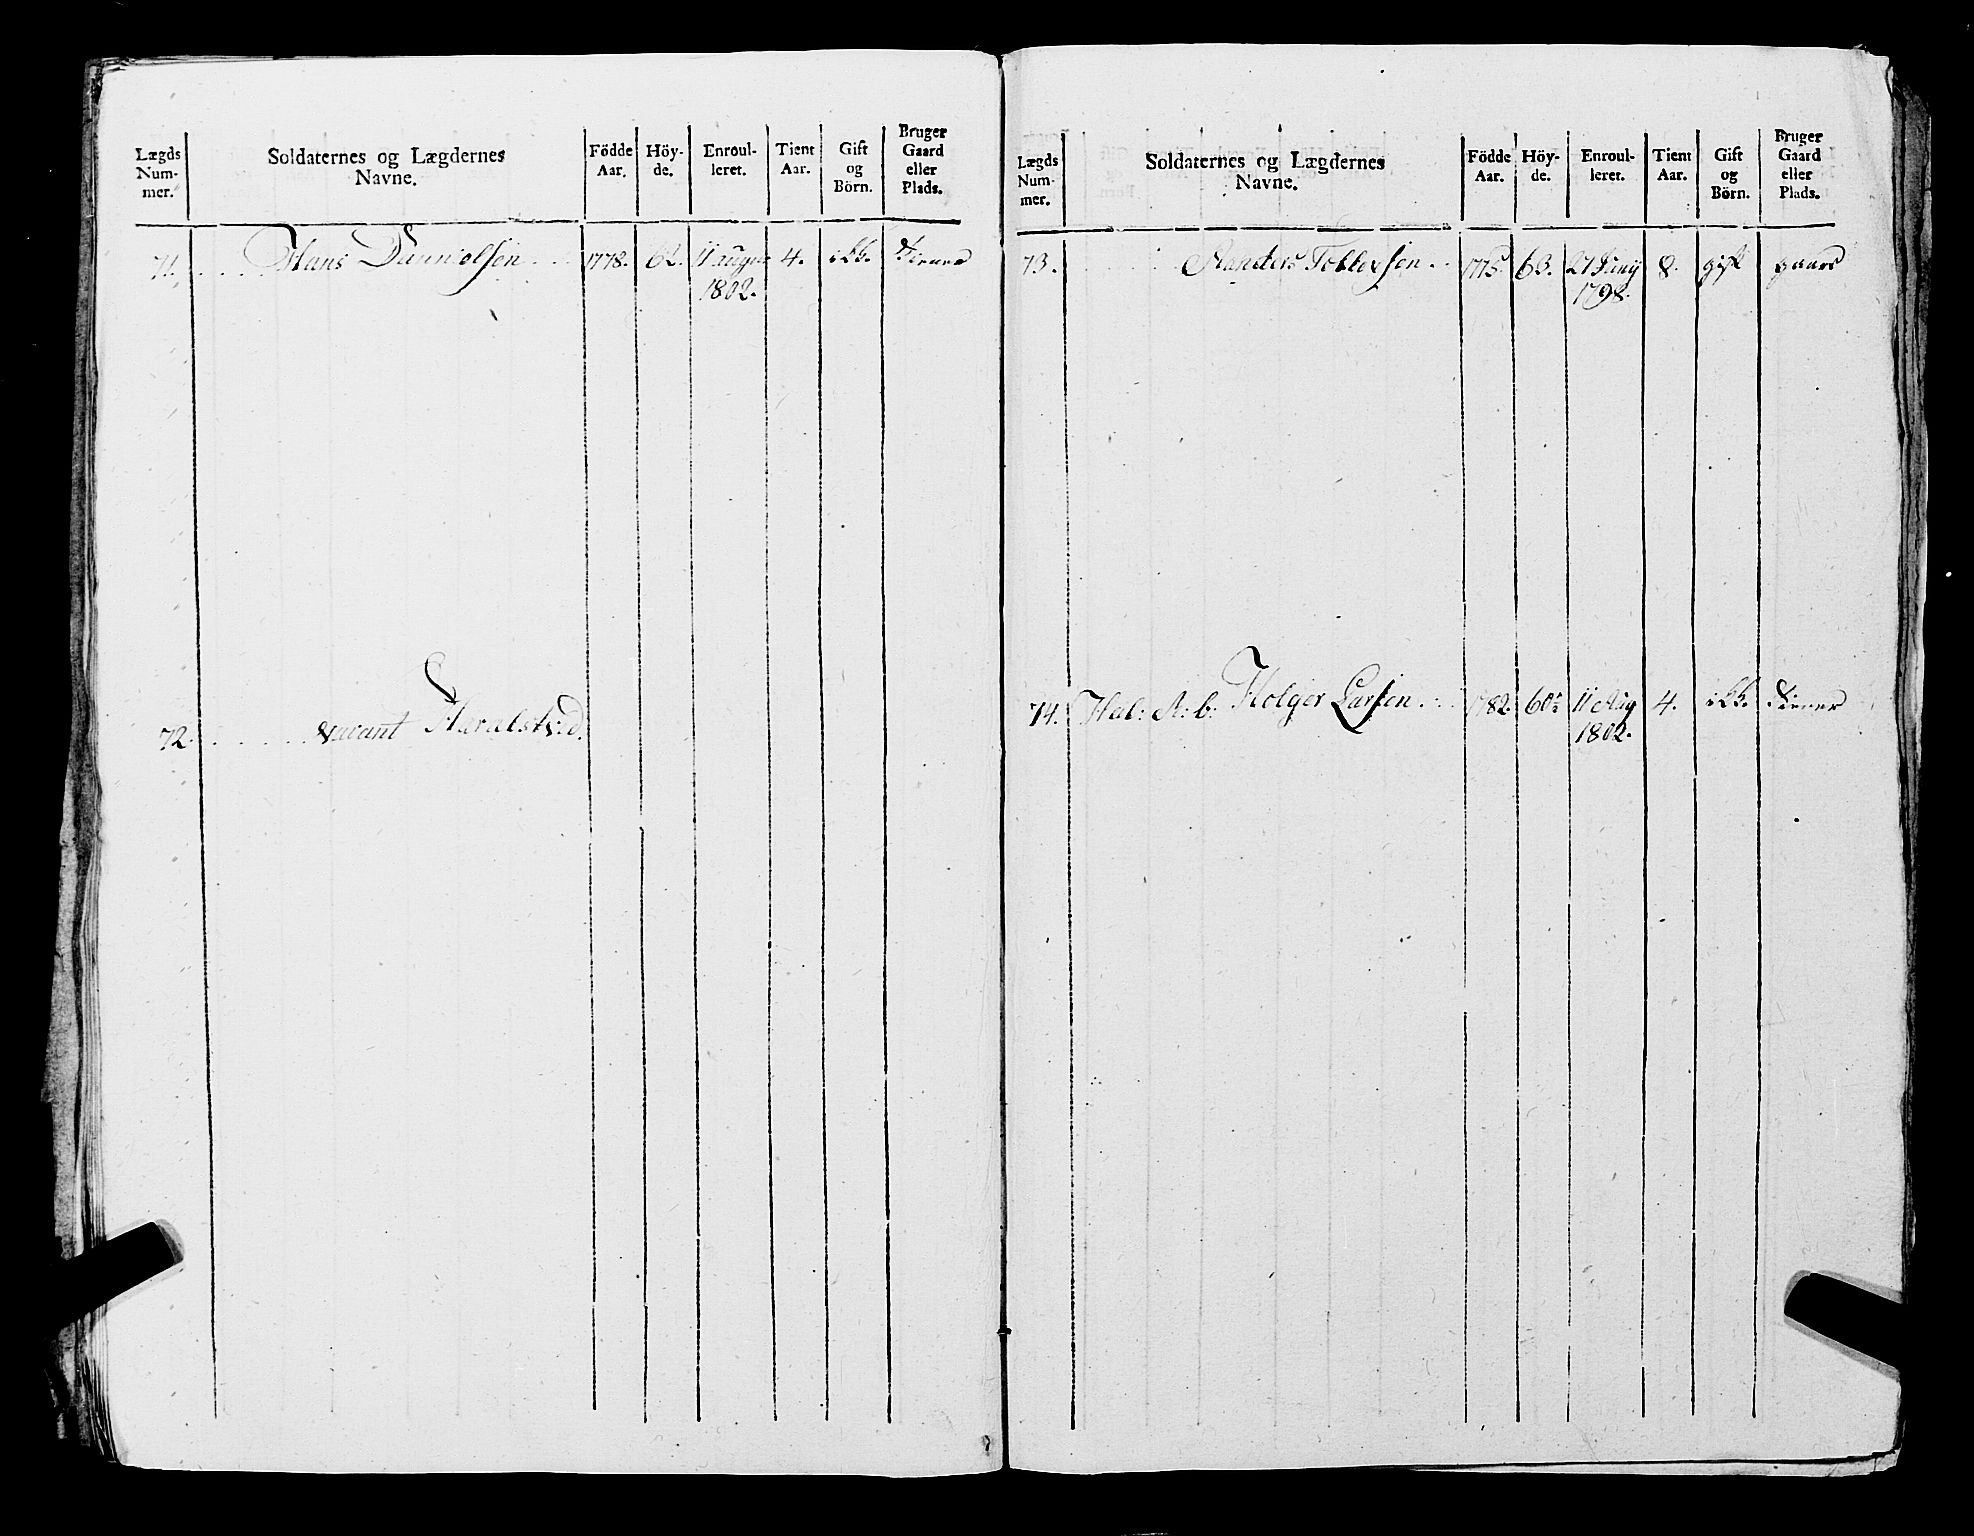 Lægds Num- mer. Soldaternes og Lægdernes Navne. Födde Aar. Höy- de. Enroul- leret. Tient Aar. Gift og Börn. Bruger Gaard eller Plads.
71. Hans Danniolsen 1778. 62. 11 augu 4. ikk. tiener
1802.
72. vacant Haralstvid.
Lægds Num- mer. Soldaternes og Lægdernes Navne. Födde Aar. Höy- de. Enroul- leret. Tient Aar. Gift og Börn. Bruger Gaard eller Plads.
73. Anders 1775 63. 27 Junij 8. gift gaard
1798.
74. Hal: A: b: Holger Larsen 1782. 60 11 Aug 4. ikk. tiener
1802.